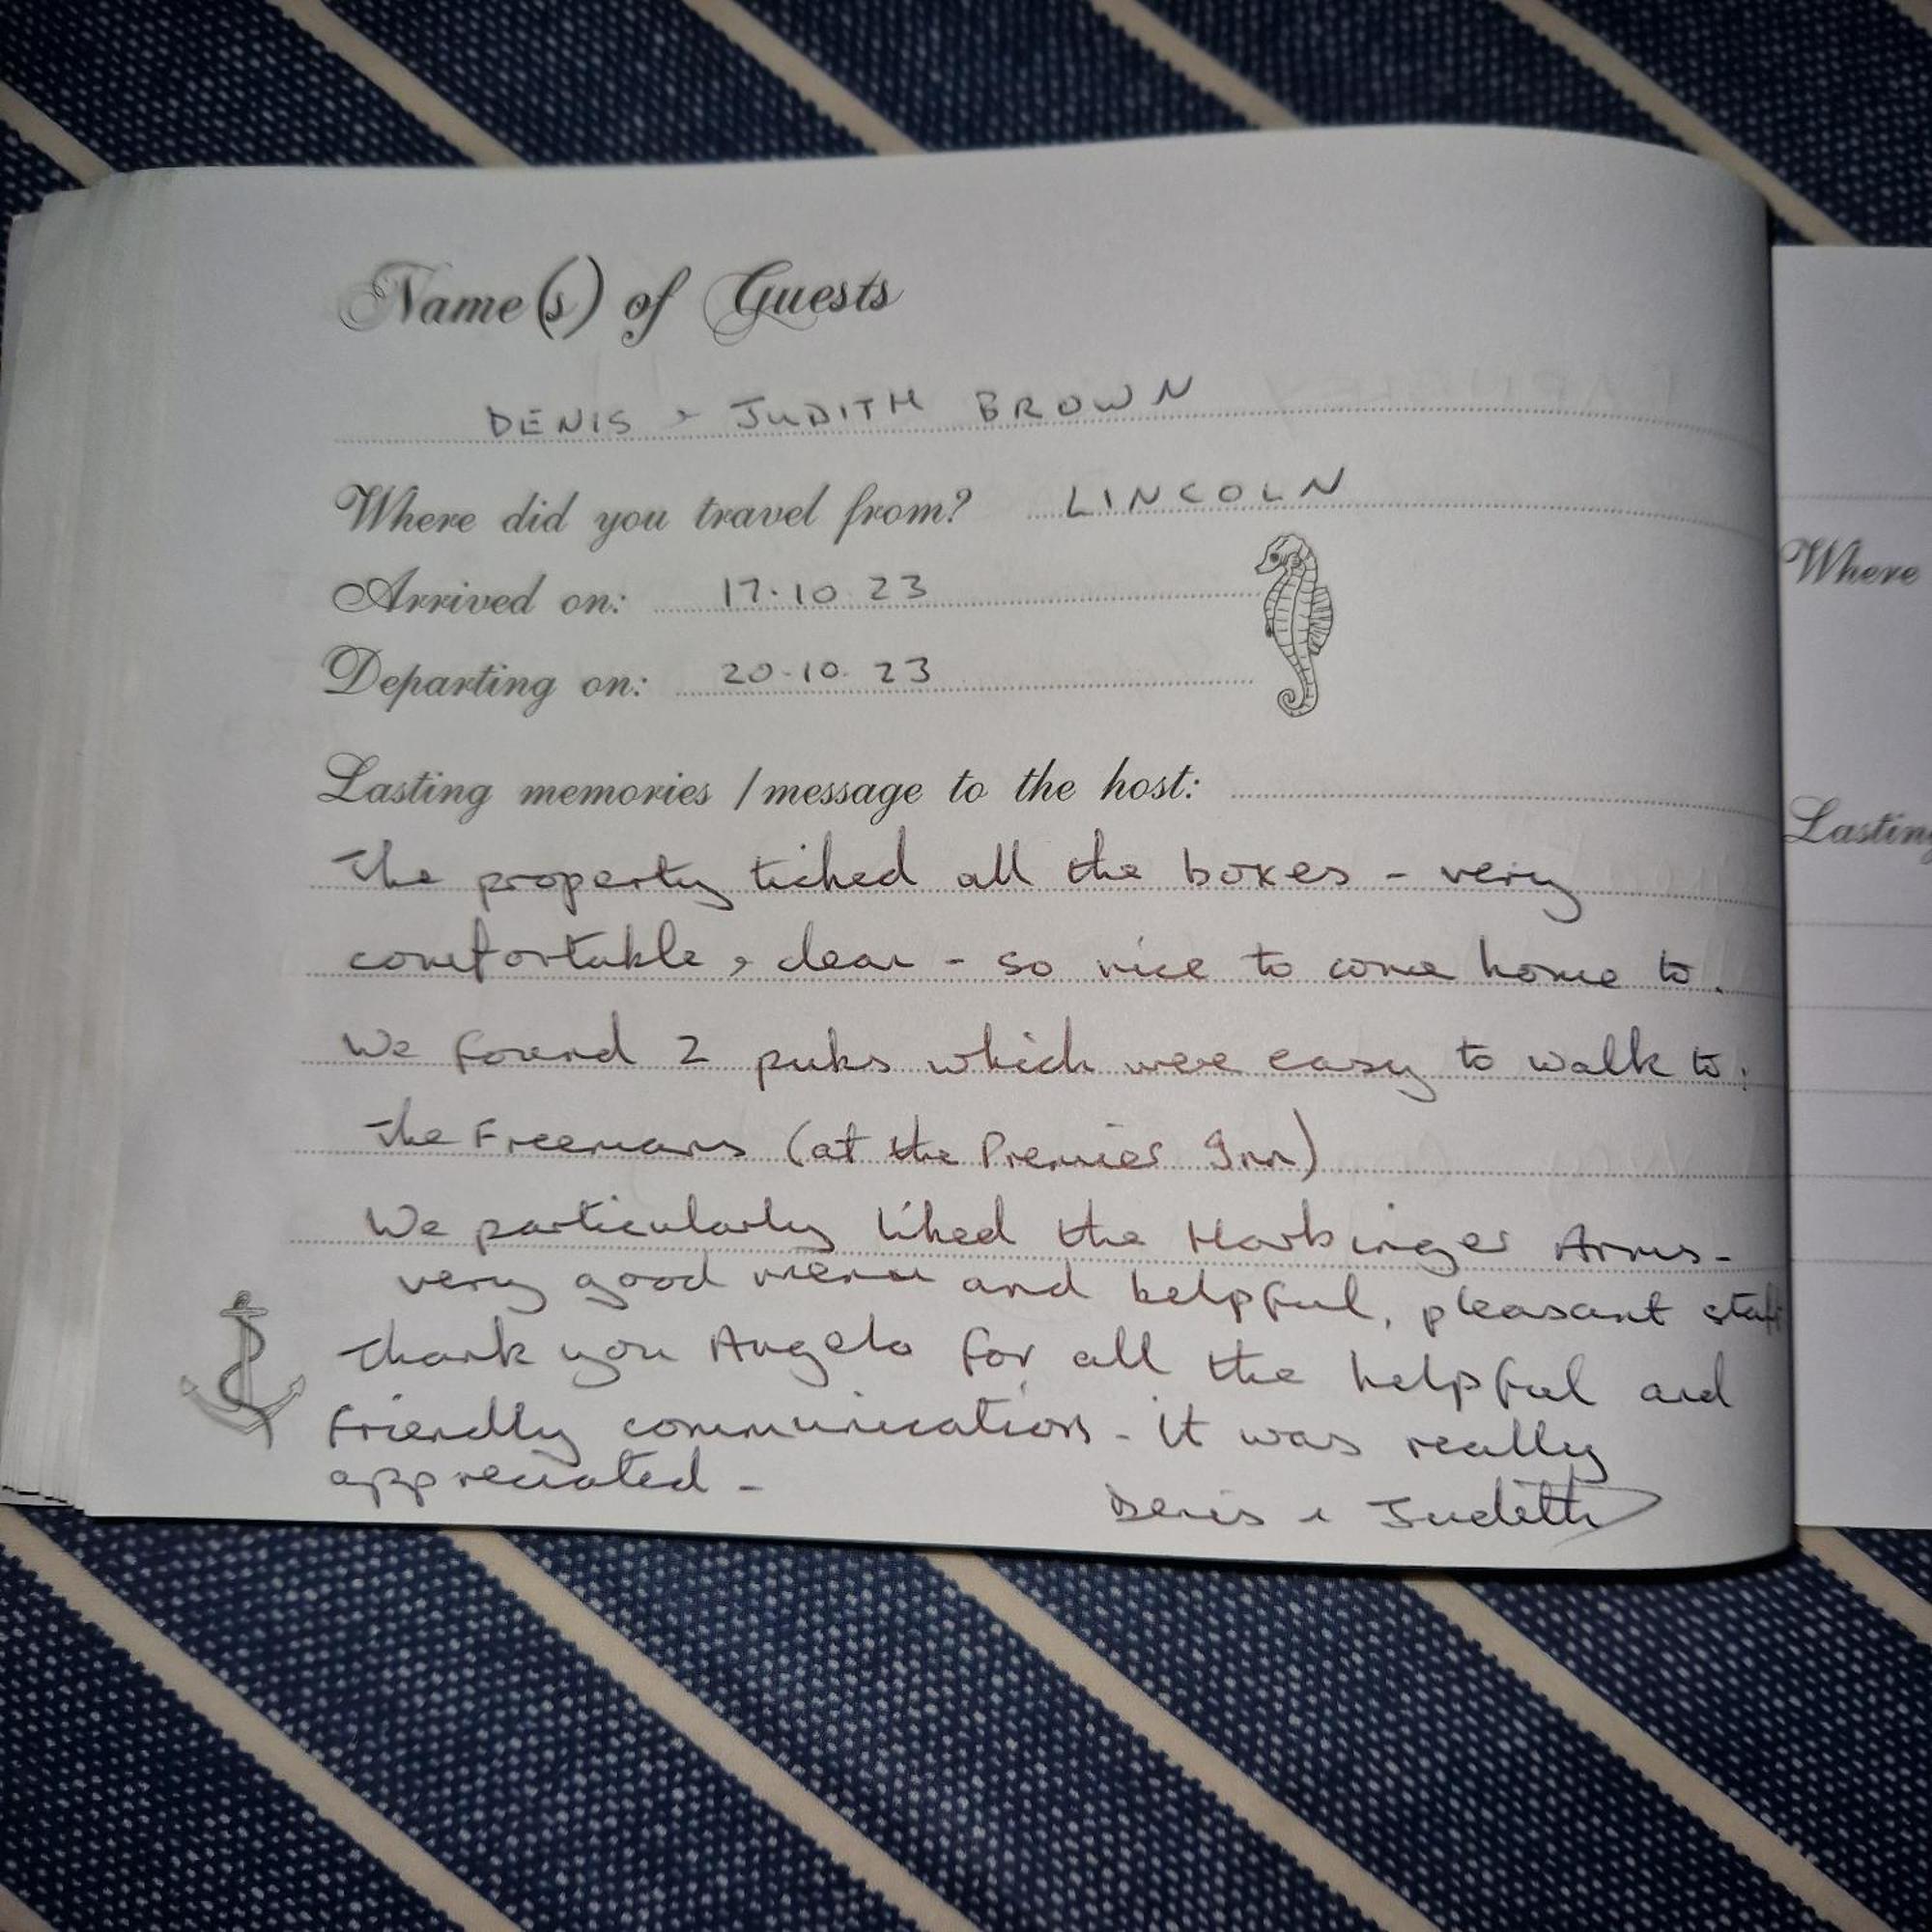 Name(s) of Guests
DENIS & JUDITH BROWN
Where did you travel from? LINCOLN
Arrived on: 17.10.23
Departing on: 20.10.23
Lasting memories / message to the host:
The property ticked all the boxes - very
comfortable & clean - so nice to come home to.
We found 2 pubs which were easy to walk to:
The Freemans (at the Premier Inn)
We particularly liked the Harbinger Arms -
very good menu and helpful, pleasant staff
Thank you Angela for all the helpful and
friendly communication - it was really
appreciated -
Denis & Judith
Where
Lasting